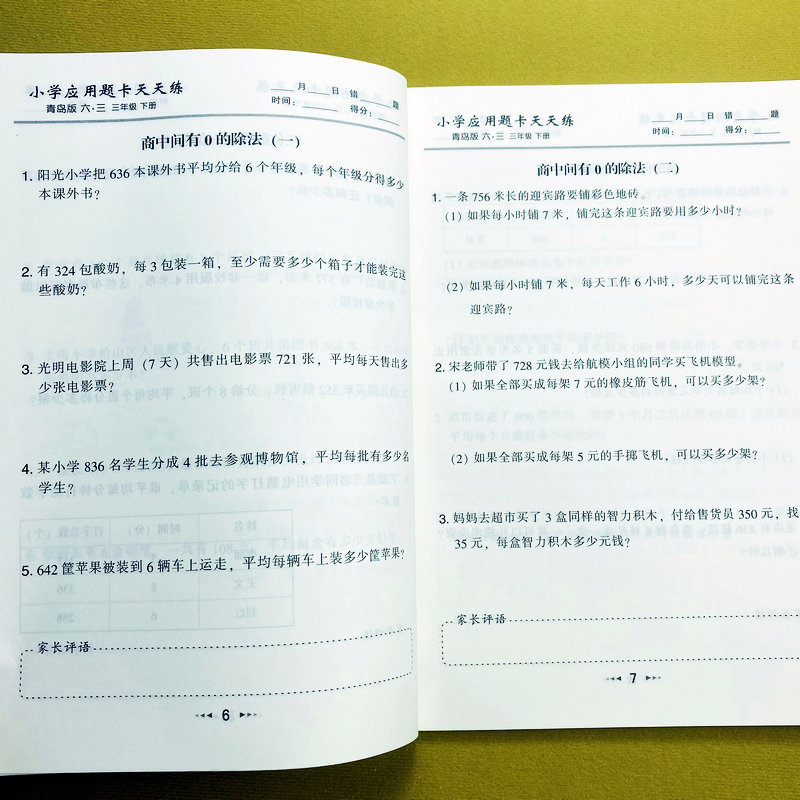 小学应用题卡天天练
青岛版 六·三 三年级 下册
月 日 错 题
时间： 得分：
商中间有 0 的除法（一）
1. 阳光小学把 636 本课外书平均分给 6 个年级，每个年级分得多少
本课外书？
2. 有 324 包酸奶，每 3 包装一箱，至少需要多少个箱子才能装完这
些酸奶？
3. 光明电影院上周（7 天）共售出电影票 721 张，平均每天售出多
少张电影票？
4. 某小学 836 名学生分成 4 批去参观博物馆，平均每批有多少名
学生？
5. 642 筐苹果被装到 6 辆车上运走，平均每辆车上装多少筐苹果？
家长评语
6
小学应用题卡天天练
青岛版 六·三 三年级 下册
月 日 错 题
时间： 得分：
商中间有 0 的除法（二）
1. 一条 756 米长的迎宾路要铺彩色地砖。
(1) 如果每小时铺 7 米，铺完这条迎宾路要用多少小时？
(2) 如果每小时铺 7 米，每天工作 6 小时，多少天可以铺完这条
迎宾路？
2. 宋老师带了 728 元钱去给航模小组的同学买飞机模型。
(1) 如果全部买成每架 7 元的橡皮筋飞机，可以买多少架？
(2) 如果全部买成每架 5 元的手掷飞机，可以买多少架？
3. 妈妈去超市买了 3 盒同样的智力积木，付给售货员 350 元，找
35 元，每盒智力积木多少元钱？
家长评语
7